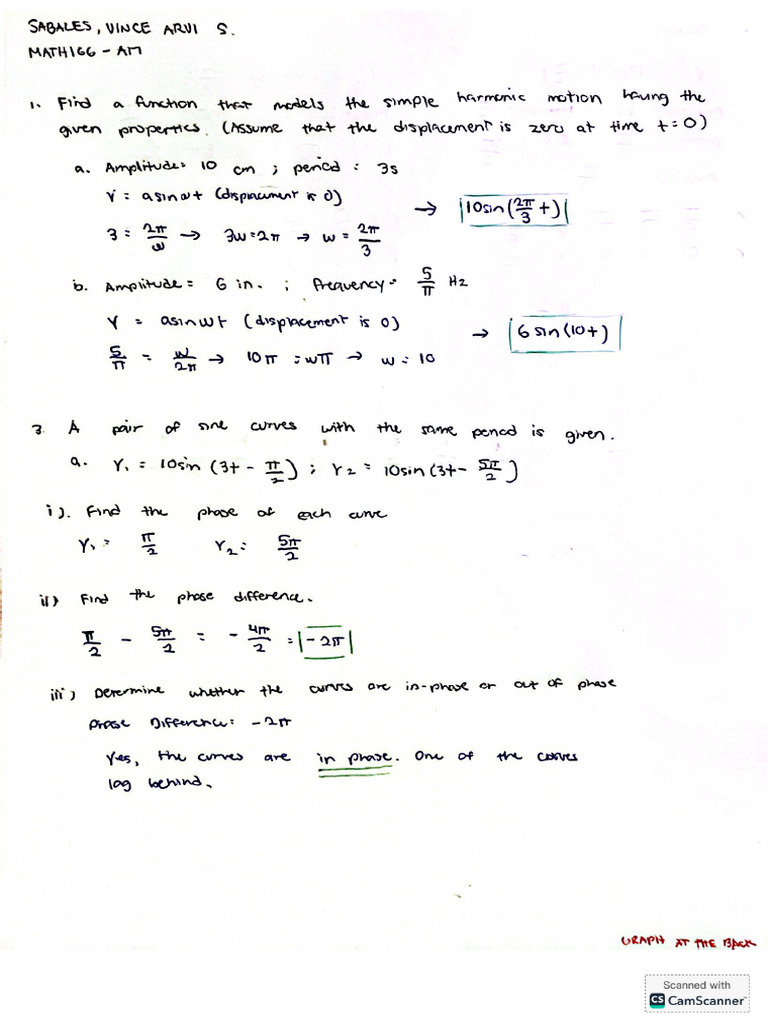 SABALES, VINCE ARVI S.
MATH166 - AM
1. Find a function that models the simple harmonic motion having the
given properties. (Assume that the displacement is zero at time t=0)
a. Amplitude: 10 cm ; period : 3s
Y = a sin ωt (displacement is 0)
→ 10sin(2π/3 t)
3 = 2π/ω → 3ω=2π → ω = 2π/3
b. Amplitude = 6 in. ; frequency = 5/π Hz
Y = asinωt (displacement is 0)
→ 6 sin(10t)
5/π = ω/2π → 10π = ωπ → ω = 10
3. A pair of sine curves with the same period is given.
a. Y₁ = 10sin (3t - π/2) ; Y₂ = 10sin (3t - 5π/2)
i). Find the phase of each curve
Y₁ = π/2 Y₂ = 5π/2
ii) Find the phase difference.
π/2 - 5π/2 = - 4π/2 = - 2π
iii) Determine whether the curves are in-phase or out of phase
Phase Difference: -2π
Yes, the curves are in phase. One of the curves
lag behind.
GRAPH AT THE BACK
Scanned with
CS CamScanner